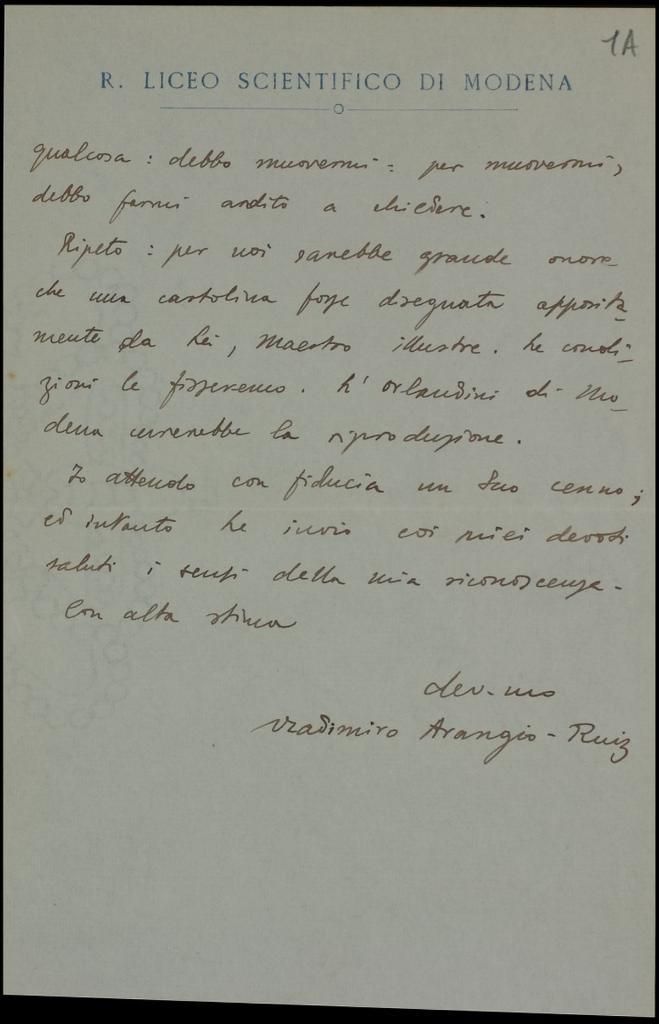 1A
R. LICEO SCIENTIFICO DI MODENA
qualcosa: debbo muovermi: per muovermi,
debbo farmi ardito a chiedere.
Ripeto: per noi sarebbe grande onore
che una cartolina fosse disegnata apposita-
mente da Lei, Maestro illustre. Le condi-
zioni le fisseremo. L'Orlandini di Mo-
dena curerebbe la riproduzione.
Io attendo con fiducia un Suo cenno;
ed intanto Le invio coi miei devoti
saluti i sensi della mia riconoscenza.
Con alta stima
dev.mo
Vladimiro Arangio-Ruiz